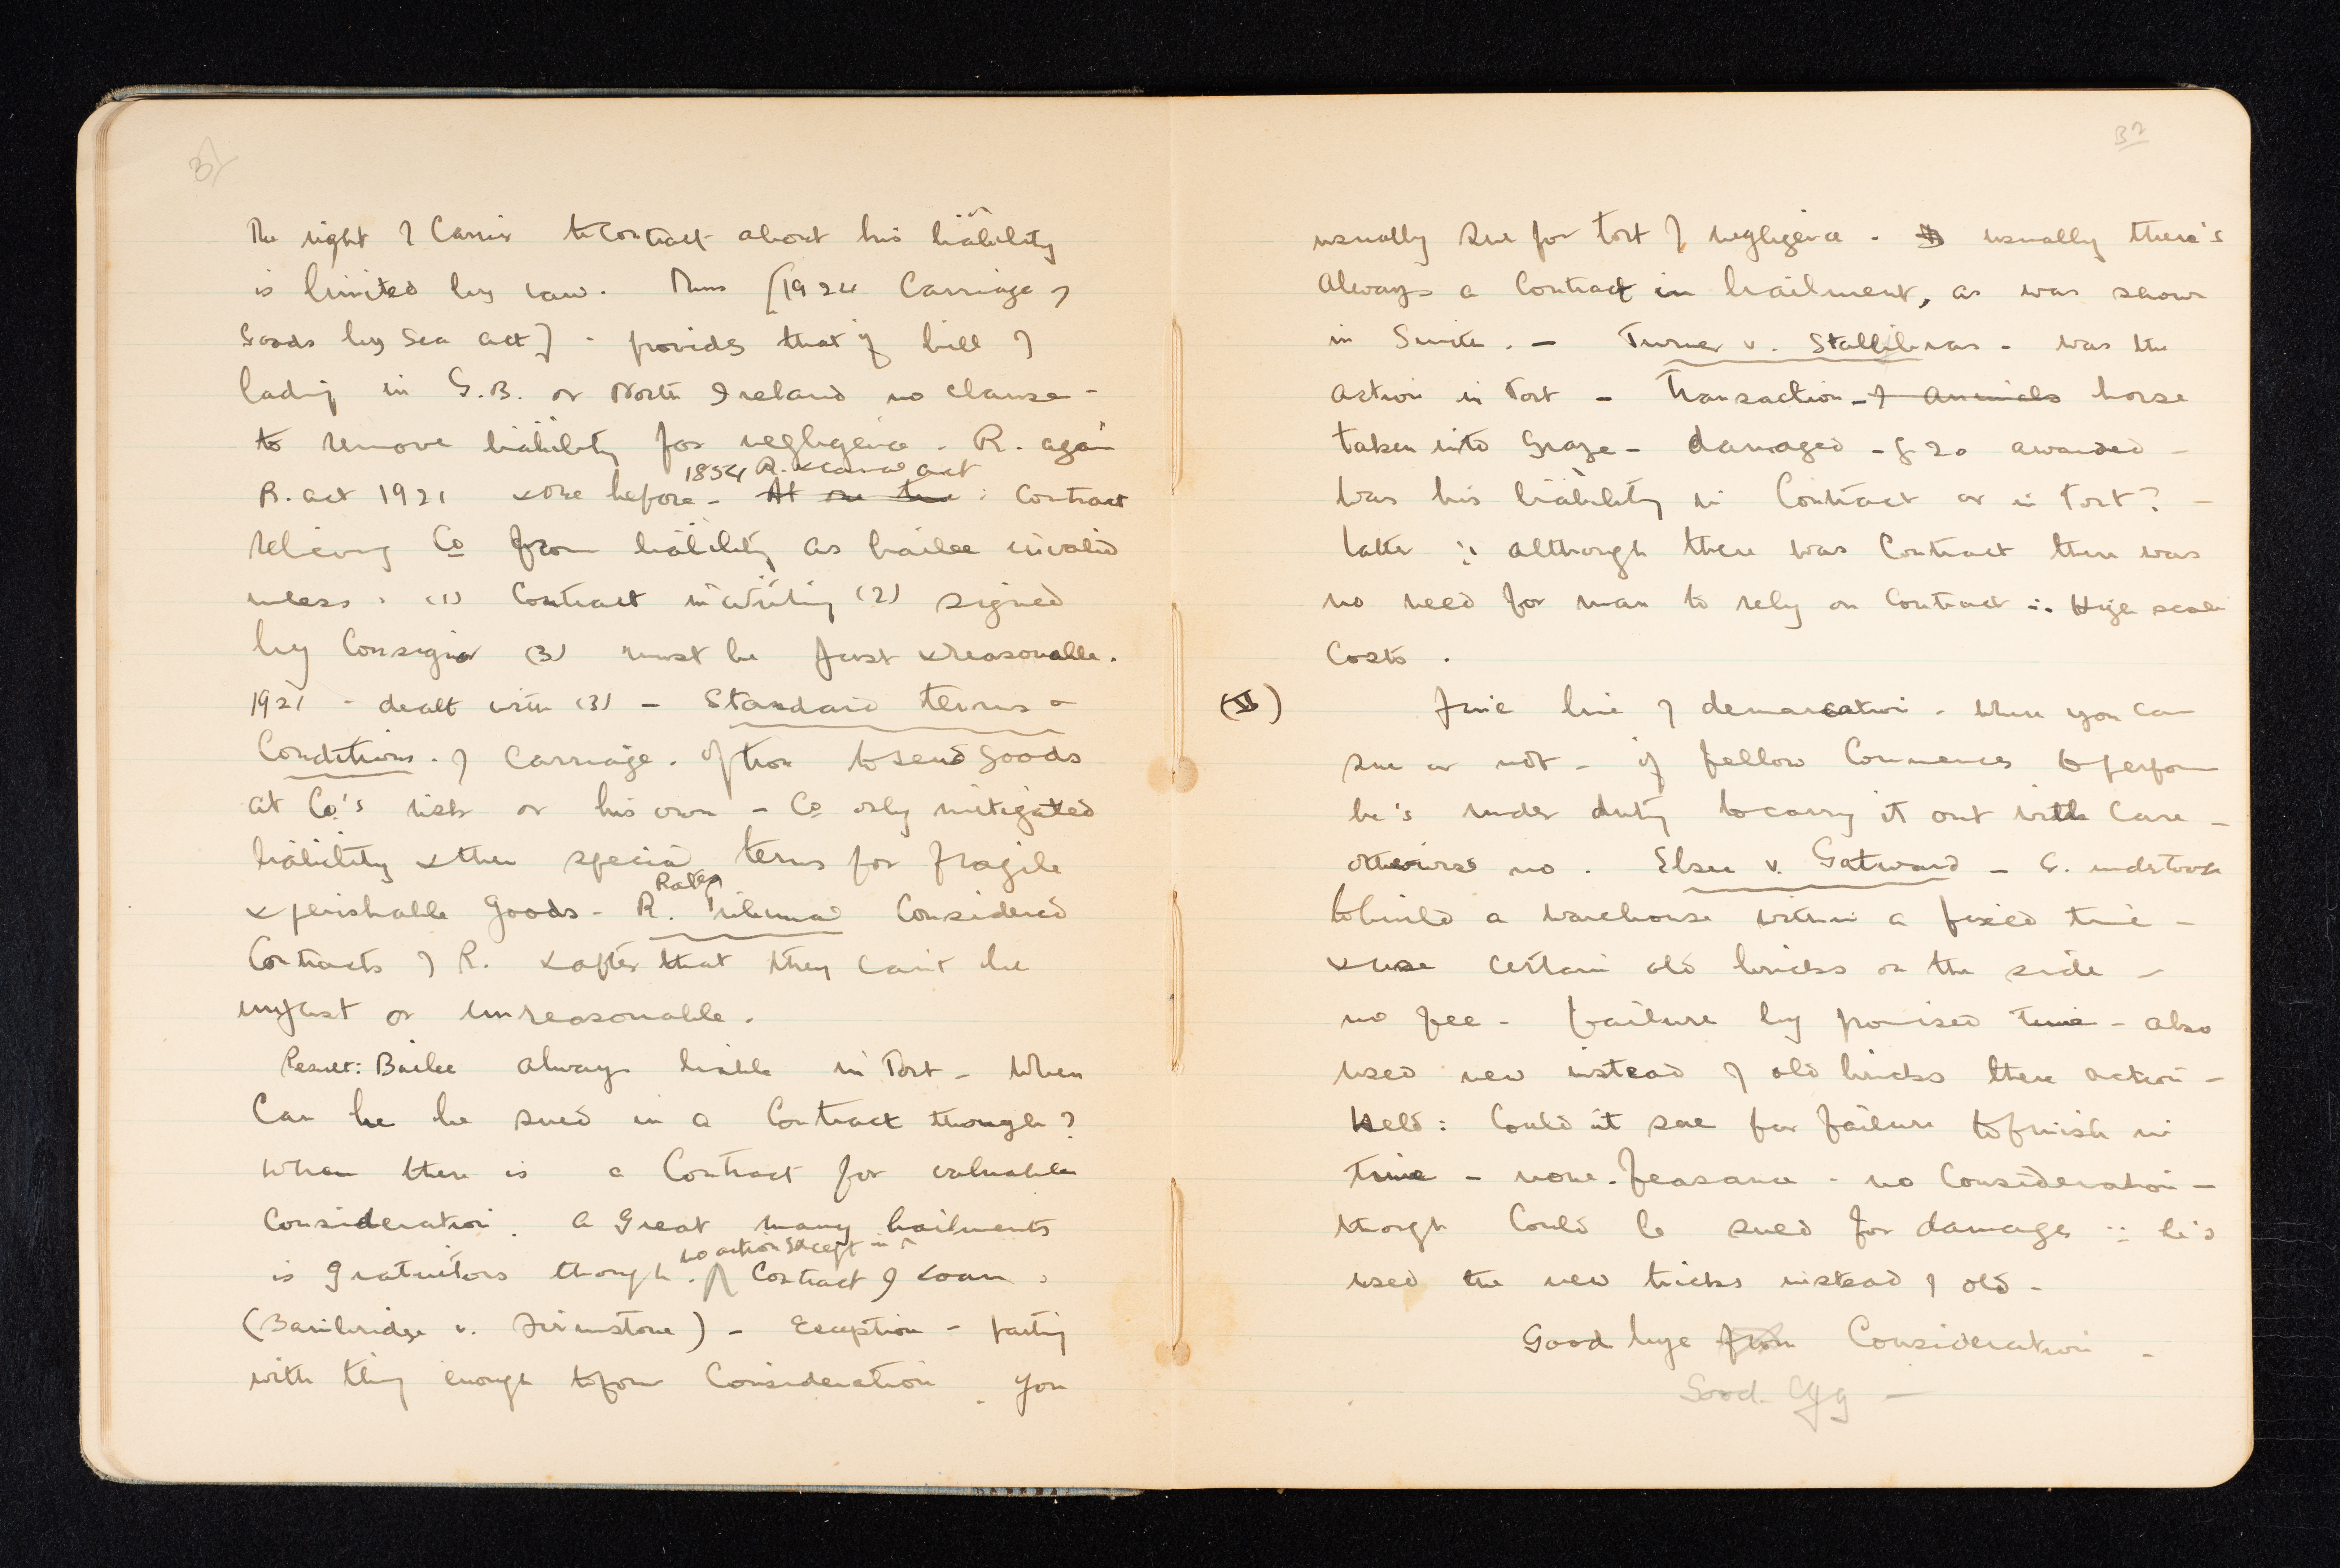 31
The right of Carrier to contract about his liability
is limited by law. Thus [1924 Carriage of
Goods by Sea act] - provides that if bill of
lading in G.B. or North Ireland no clause -
to remove liability for negligence - R. again
1854 R. & Canal act
R. act 1921 & one before - At one time : Contract
relieving Co from liability as bailee invalid
unless . (1) Contract in writing (2) signed
by Consignor (3) must be just & reasonable.
1921 - dealt with (3) - Standard terms &
Conditions . of Carriage . option to send goods
at Co's risk or his own - Co only mitigated
liability & then special terms for fragile
Rates
& perishable goods - R. Tribunal Considered
Contracts of R. & after that they can't be
unjust or unreasonable.
Result: Bailee always liable in Tort - When
Can he be sued in a Contract though?
When there is a Contract for valuable
Consideration . A great many bailments
no action except in
is gratuitous though . Contract of Loan .
(Bainbridge v. Firmstone) - Exception - parting
with thing enough to form Consideration . You
32
usually sue for tort of negligence . usually there's
always a Contract in bailment, as was shown
in Smith . - Turner v. Stallibrass - was the
action in Tort - Transaction - of animals horse
taken into Graze - damaged - £ 20 awarded -
was his liability in Contract or in Tort? -
latter ∵ although there was Contract there was
no need for man to rely on Contract ∴ High scale
Costs .
(VI)
Fine line of demarcation - where you can
sue or not - if fellow Commences to perform
he's under duty to carry it out with Care -
otherwise no . Elsee v. Gatward - G. undertook
to build a warehouse within a fixed time -
& use certain old bricks on the side -
no fee - failure by promised time - also
used new instead of old bricks there action -
Held : Could n't sue for failure to finish in
time - none-feasance - no Consideration -
though Could be sued for damages ∵ he's
used the new bricks instead of old -
Good bye from Consideration -
Good Egg -